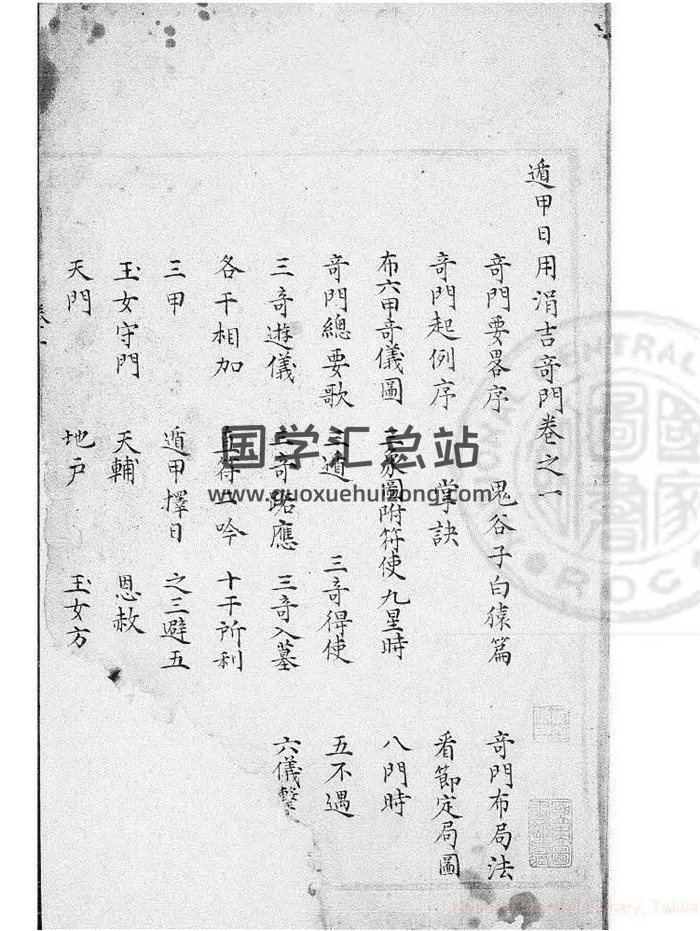 遁甲日用涓吉奇門卷之一
奇門要畧序 鬼谷子白猿篇 奇門布局法
奇門起例序 掌訣 看節定局圖
布六甲奇儀圖 圖附符使 九星時 八門時
奇門總要歌 三遁 三奇得使 五不遇
三奇遊儀 三奇路應 三奇入墓 六儀擊
各干相加 十干所利
三甲 遁甲擇日 之三避五
玉女守門 天輔 恩赦
天門 地戶 玉女方
国学汇总站
www.guoxuehuizong.com
CENTRAL
ROC
brary, Taiwa